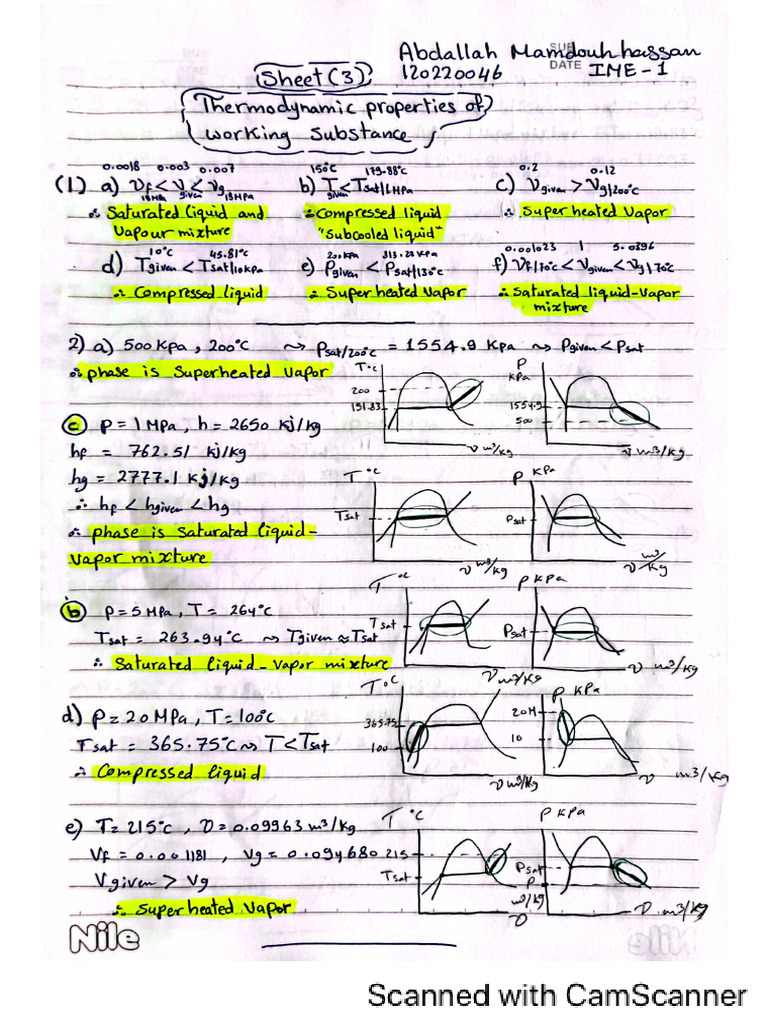 Abdallah Mamdouh hassan
SUB
120220046 DATE IME-1
Sheet (3)
Thermodynamic properties of
working substance
0.0018 0.003 0.007 150°C 179.88°C 0.2 0.12
(1) a) Vf < V given < Vg 18MPa b) T given < Tsat|1MPa c) Vgiven > Vg|200°C
∴ Saturated liquid and ∴ Compressed liquid ∴ Super heated vapor
vapour mixture "subcooled liquid"
10°C 45.81°C 200kPa 313.22 kPa 0.001023 1 5.0396
d) Tgiven < Tsat|10kPa e) Pgiven < Psat|130°C f) Vf|70°C < Vgiven < Vg|70°C
∴ Compressed liquid ∴ Super heated vapor ∴ Saturated liquid-vapor
mixture
2) a) 500 kpa, 200°C ⤳ Psat/200°C = 1554.9 kPa ⤳ Pgiven < Psat
∴ phase is Superheated vapor
T°C 200 151.83 ν m³/kg
P kPa 1554.9 500 ν m³/kg
c) P = 1 MPa, h = 2650 kj/kg
hf = 762.51 kj/kg
hg = 2777.1 kj/kg
∴ hf < hgiven < hg
∴ phase is saturated liquid-
vapor mixture
T °C Tsat ν m³/kg
P kPa Psat ν m³/kg
b) P = 5 MPa, T = 264°C
Tsat = 263.94°C ⤳ Tgiven ≈ Tsat
∴ Saturated liquid-vapor mixture
T °C Tsat ν m³/kg
P kPa Psat ν m³/kg
d) P = 20 MPa, T = 100°C
Tsat = 365.75°C ⤳ T < Tsat
∴ Compressed liquid
T °C 365.75 100 ν m³/kg
P kPa 20M 10 ν m³/kg
e) T = 215°C, ν = 0.09963 m³/kg
Vf = 0.001181, Vg = 0.094680
Vgiven > Vg
∴ Super heated vapor
T °C 215 Tsat m³/kg ν
P kPa Psat P ν m³/kg
Nile
Scanned with CamScanner